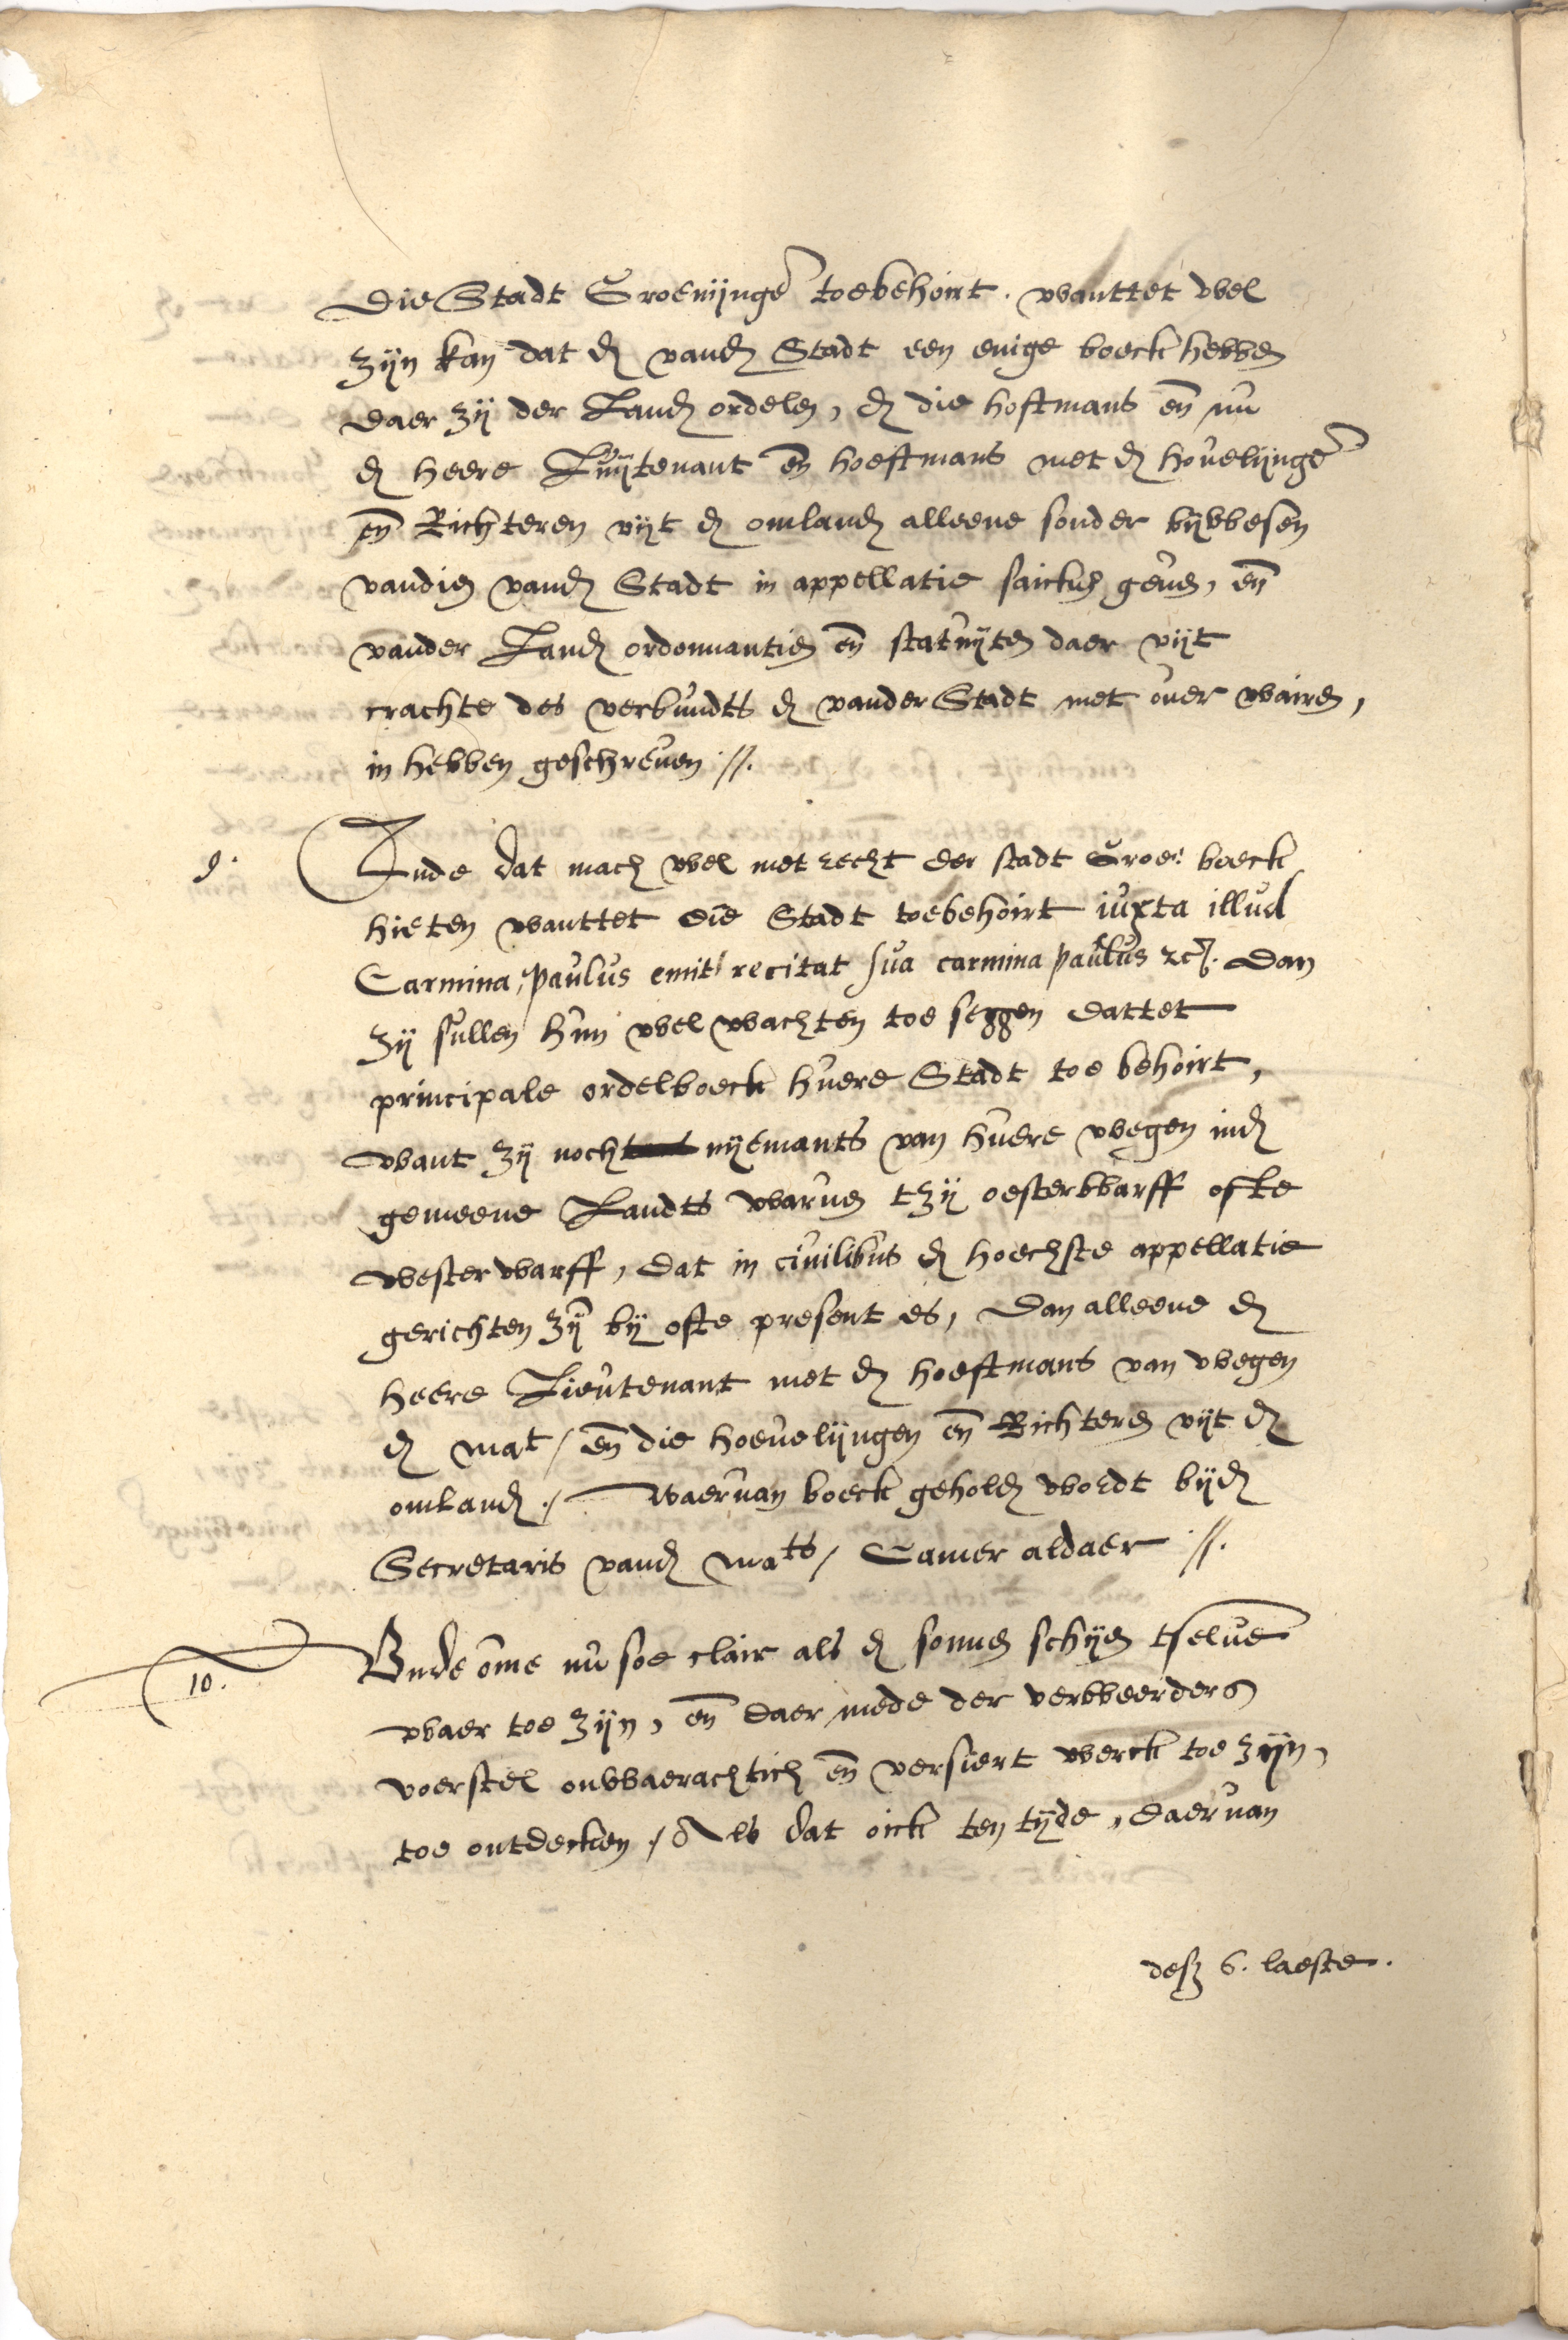 Die Stadt Groenijnge toebehoirt. wanttet wel
zijn kan dat d vand Stadt een enige boeck hebben
daer zij der Land ordelen, d die hoftmans en nu
d heere Luijtenant en hoeftmans met d hovelijnge
en Richteren uijt d omland alleene sonder bijwesen
vandien vand Stadt in appellatie saicken geven, en
vander Land ordonnantien en statuijten daer uijt
crachte des verbundts d vander Stadt met over wairen,
in hebben geschreven //.
9. Ende dat mach wel met recht der stadt Groe: boeck
hieten wanttet die Stadt toebehoirt iuxta illud
Carmina, Paulus emit, recitat sua carmina paulus etc. Dan
zij sullen hun wel wachten toe seggen dattet
principale ordelboeck huere Stadt toe behoirt,
want zij noch nijemants van huere wegen ind
gemeene Landts warven tzij oesterwarff ofte
westerwarff, dat in civilibus d hoechste appellatie
gerichten zij bij ofte present es, Dan alleene d
heere Lieutenant met d hoeftmans van wegen
d mat / en die hoevelijngen en Richteren uijt d
omland ./ Waervan boeck gehold wordt bijd
Secretaris vand mats / Camer aldaer //.
10. Unde ome nu soe clair als d sonnen schijn tselve
waer toe zijn, en daer mede der verweerders
voerstel onwaerachtich en versiert werck toe zijn,
toe ontdecken ./ Als dat oick ten tijde, daervan
6. laeste.